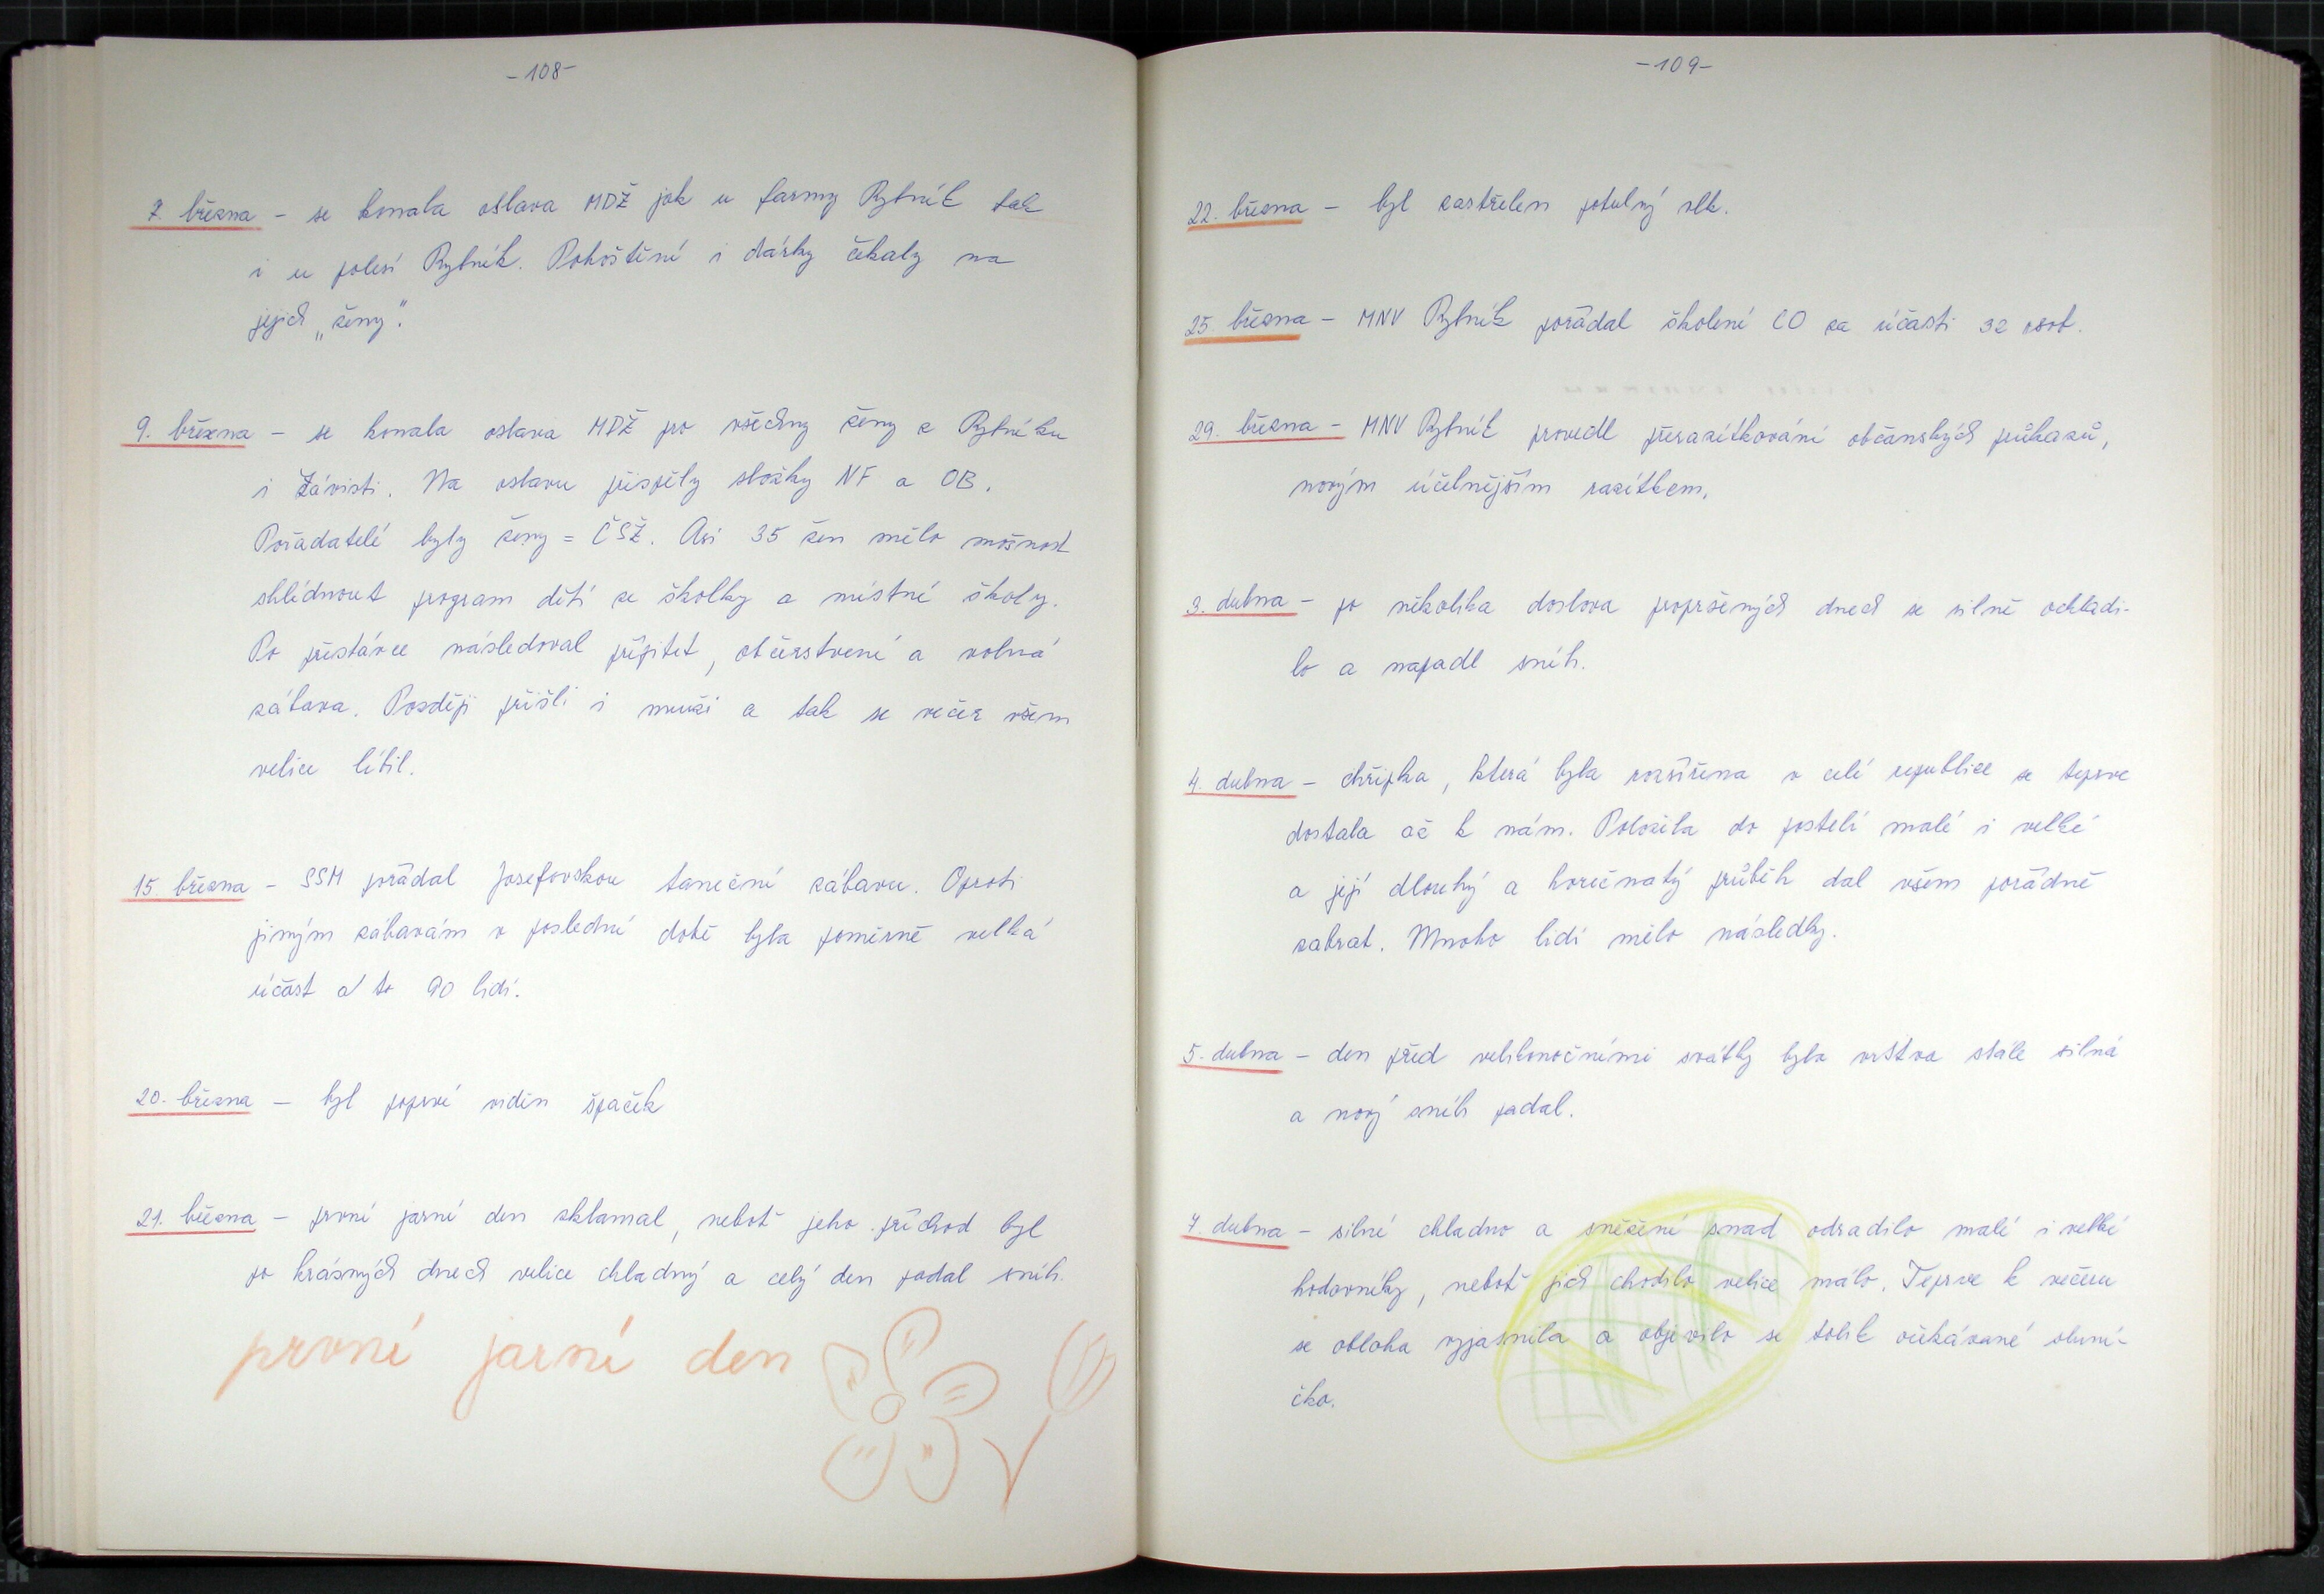 -108-
7. března - se konala oslava MDŽ jak u farmy Rybník tak
i u polesí Rybník. Pohoštění i dárky čekaly na
jejich „ženy".
9. března - se konala oslava MDŽ pro všechny ženy z Rybníku
i Závisti. Na oslavu přispěly složky NF a OB.
Pořadatelé byly ženy = ČSŽ. Asi 35 žen mělo možnost
shlédnout program dětí ze školky a místné školy.
Po přestávce následoval přípitet, občerstvení a volná
zábava. Později přišli i muži a tak se večer všem
velice líbil.
15. března - SSM pořádal Josefovskou taneční zábavu. Oproti
jiným zábavám v poslední době byla poměrně velká
účast a to 90 lidí.
20. března - byl poprvé viděn špaček
21. března - první jarní den zklamal, neboť jeho příchod byl
po krásných dnech velice chladný a celý den padal sníh.
první jarní den
-109-
22. března - byl zastřelen potulný vlk.
25. března - MNV Rybník pořádal školení CO za účasti 32 osob.
29. března - MNV Rybník provedl přerazítkování občanských průkazů,
novým účelnějším razítkem.
3. dubna - po několika doslova propršených dnech se silně ochladi-
lo a napadl sníh.
4. dubna - chřipka, která byla rozšířena v celé republice se teprve
dostala až k nám. Položila do postelí malé i velké
a její dlouhý a horečnatý průběh dal všem pořádně
zabrat. Mnoho lidí mělo následky.
5. dubna - den před velikonočními svátky byla vrstva stále silná
a nový sníh padal.
7. dubna - silné chladno a sněžení snad odradilo malé i velké
hodovníky, neboť jich chodilo velice málo. Teprve k večeru
se obloha vyjasnila a objevilo se tolik očekávané sluní-
čko.